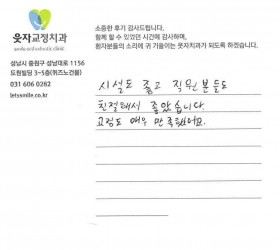 소중한 후기 감사드립니다.
함께 할 수 있었던 시간에 감사하며,
환자분들의 소리에 귀 기울이는 웃자치과가 되도록 하겠습니다.
웃자교정치과
smile orthodontic clinic
성남시 중원구 성남대로 1156
도원빌딩 3~5층(퀴즈노건물)
031 606 0282
letssmile.co.kr
시설도 좋고 직원분들도
친절해서 좋았습니다
교정도 매우 만족했어요.